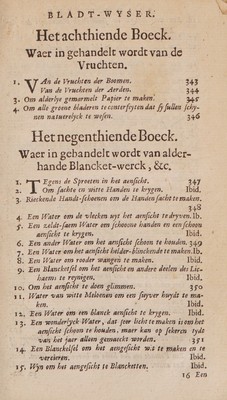 BLADT-WYSER.
Het achthiende Boeck.
Waer in gehandelt wordt van de
Vruchten.
1. VAn de Vruchten der Boomen. 343
2. Van de Vruchten der Aerden. 344
3. Om alderlye gemarmelt Papier te maken. 345
4. Om alle groene bladeren te conterfyten dat sy sullen schy-
nen natuerelyck te wesen. 346
Het negenthiende Boeck.
Waer in gehandelt wordt van alder-
hande Blancket-werck, &c.
1. TEgens de Sproeten in het aensicht. 347
2. Om sachte en witte Handen te krygen. Ibid.
3. Rieckende Handt-schoenen om de Handen sacht te maken.
348
4. Een Water om de vlecken uyt het aensicht te dryven. Ib.
5. Een zeldt-saem Water om schoone handen en een schoon
aensicht te krygen. Ibid.
6. Een ander Water om het aensicht schoon te houden. 349
7. Een Water om het aensicht helder-blinckende te maken. Ib.
8. Een Water om rooder wangen te maken. Ibid.
9. Een Blancketsel om het aensicht en andere deelen des Lic-
haems te reynigen. Ibid.
10. Om het aensicht te doen glimmen. 350
11. Water van witte Meloenen om een suyver huydt te ma-
ken. Ibid.
12. Een Water om een blanck aensicht te krygen. Ibid.
13. Een wonderlyck Water, dat seer licht te maken is om het
aensicht schoon te houden, maer kan op sekeren tydt
van het jaer alleen gemaeckt worden. 351
14. Een Blancketsel om het aengesicht te maken en te
vercieren. Ibid.
15. Wyn om het aengesicht te Blancketten. Ibid.
16 Een